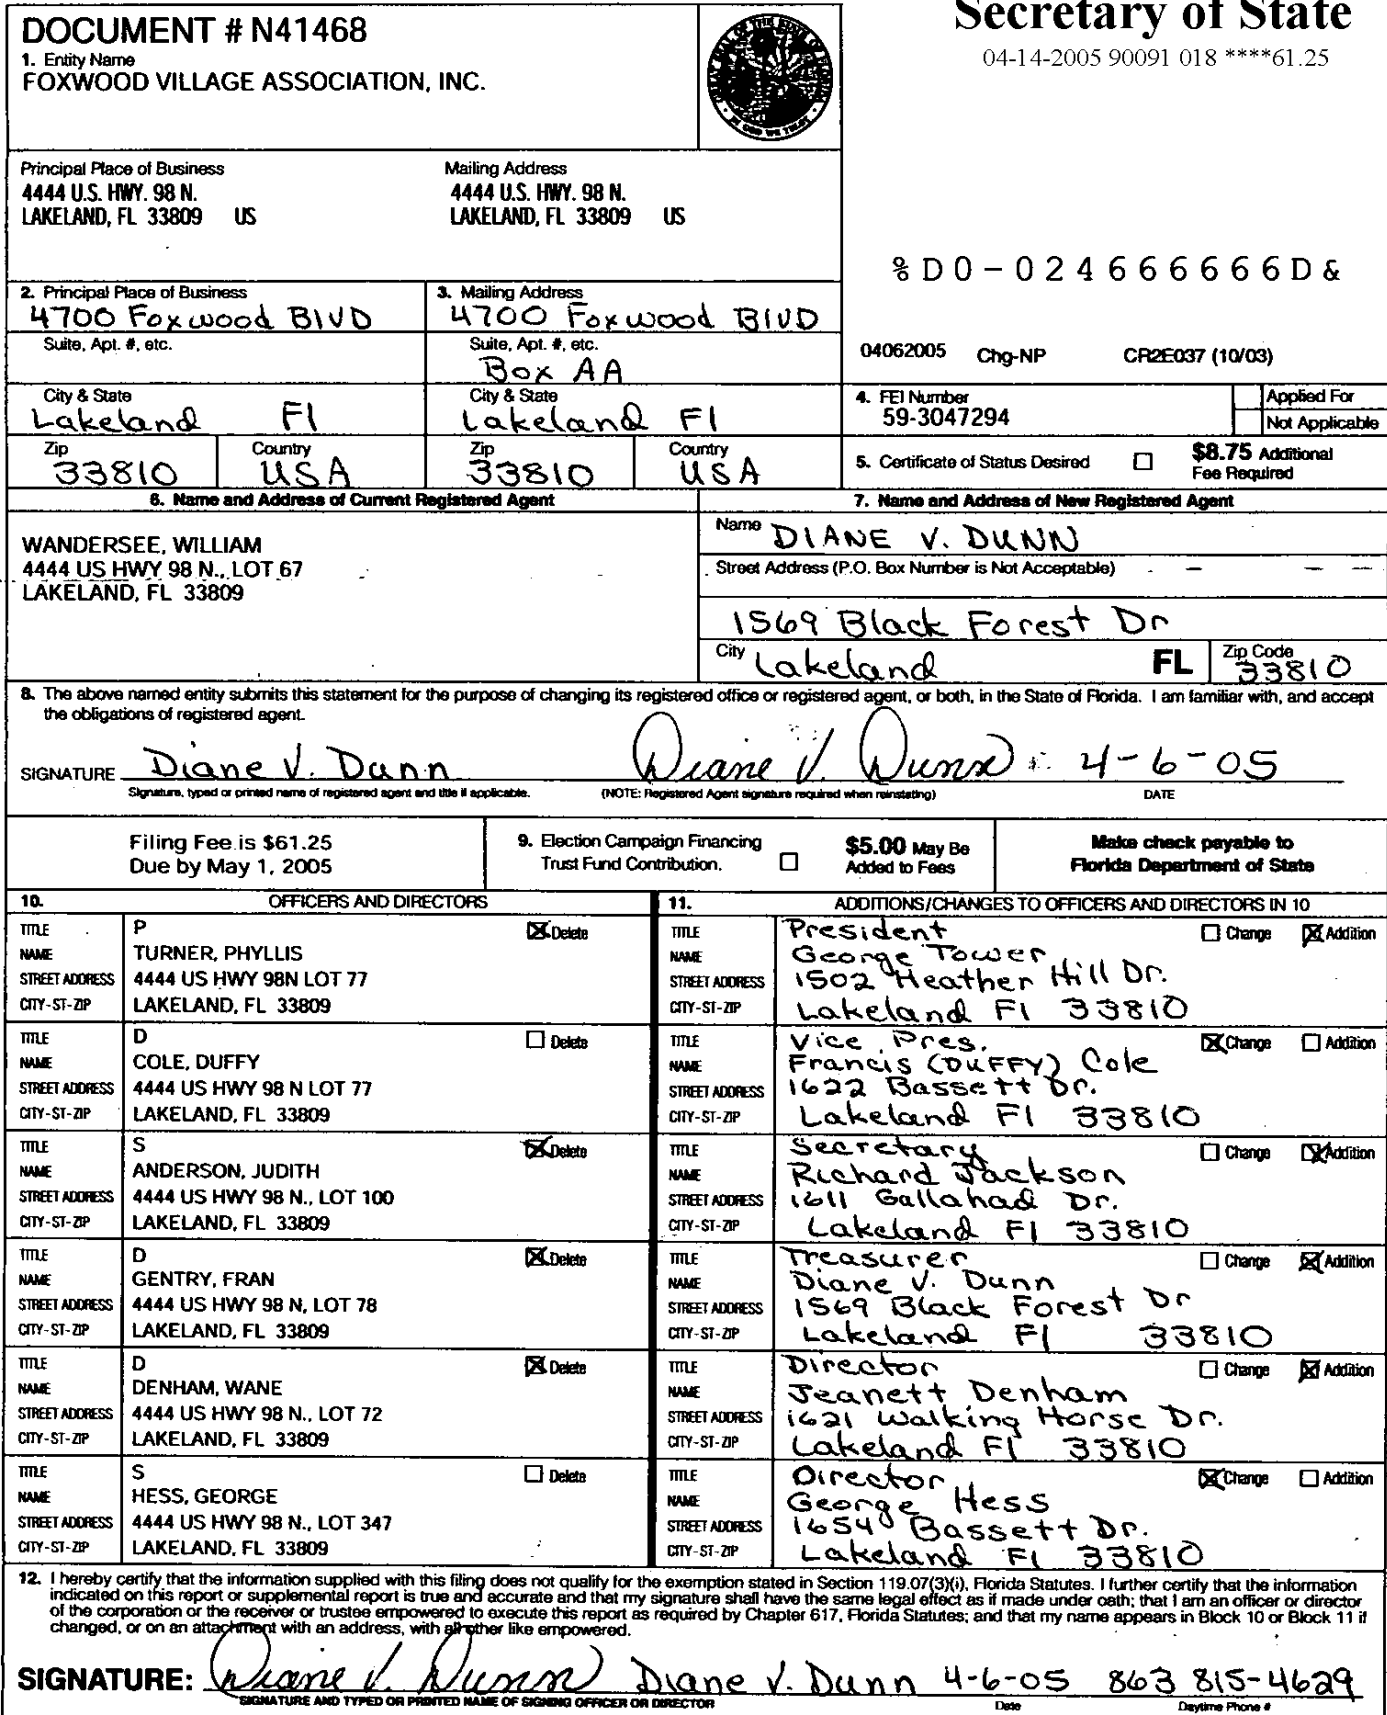 Secretary of State
04-14-2005 90091 018 ****61.25
DOCUMENT # N41468
1. Entity Name
FOXWOOD VILLAGE ASSOCIATION, INC.
Principal Place of Business
4444 U.S. HWY. 98 N.
LAKELAND, FL 33809 US
Mailing Address
4444 U.S. HWY. 98 N.
LAKELAND, FL 33809 US
%D0-024666666D&
2. Principal Place of Business
4700 Foxwood BlVD
Suite, Apt. #, etc.
City & State
Lakeland Fl
Zip
33810
Country
USA
3. Mailing Address
4700 Foxwood BlVD
Suite, Apt. #, etc.
Box AA
City & State
Lakeland Fl
Zip
33810
Country
USA
04062005 Chg-NP CR2E037 (10/03)
4. FEI Number
59-3047294
Applied For
Not Applicable
5. Certificate of Status Desired
$8.75 Additional
Fee Required
6. Name and Address of Current Registered Agent
WANDERSEE, WILLIAM
4444 US HWY 98 N., LOT 67
LAKELAND, FL 33809
7. Name and Address of New Registered Agent
Name DIANE V. DUNN
Street Address (P.O. Box Number is Not Acceptable)
1569 Black Forest Dr
City Lakeland FL Zip Code 33810
8. The above named entity submits this statement for the purpose of changing its registered office or registered agent, or both, in the State of Florida. I am familiar with, and accept
the obligations of registered agent.
SIGNATURE Diane V. Dunn Diane V. Dunn 4-6-05
Signature, typed or printed name of registered agent and title if applicable. (NOTE: Registered Agent signature required when reinstating) DATE
Filing Fee is $61.25
Due by May 1, 2005
9. Election Campaign Financing
Trust Fund Contribution.
$5.00 May Be
Added to Fees
Make check payable to
Florida Department of State
10. OFFICERS AND DIRECTORS
TITLE P Delete
NAME TURNER, PHYLLIS
STREET ADDRESS 4444 US HWY 98N LOT 77
CITY-ST-ZIP LAKELAND, FL 33809
TITLE D Delete
NAME COLE, DUFFY
STREET ADDRESS 4444 US HWY 98 N LOT 77
CITY-ST-ZIP LAKELAND, FL 33809
TITLE S Delete
NAME ANDERSON, JUDITH
STREET ADDRESS 4444 US HWY 98 N., LOT 100
CITY-ST-ZIP LAKELAND, FL 33809
TITLE D Delete
NAME GENTRY, FRAN
STREET ADDRESS 4444 US HWY 98 N, LOT 78
CITY-ST-ZIP LAKELAND, FL 33809
TITLE D Delete
NAME DENHAM, WANE
STREET ADDRESS 4444 US HWY 98 N., LOT 72
CITY-ST-ZIP LAKELAND, FL 33809
TITLE S Delete
NAME HESS, GEORGE
STREET ADDRESS 4444 US HWY 98 N., LOT 347
CITY-ST-ZIP LAKELAND, FL 33809
11. ADDITIONS/CHANGES TO OFFICERS AND DIRECTORS IN 10
TITLE President Change Addition
NAME George Tower
STREET ADDRESS 1502 Heather Hill Dr.
CITY-ST-ZIP Lakeland Fl 33810
TITLE Vice Pres. Change Addition
NAME Francis (DUFFY) Cole
STREET ADDRESS 1622 Bassett Dr.
CITY-ST-ZIP Lakeland Fl 33810
TITLE Secretary Change Addition
NAME Richard Jackson
STREET ADDRESS 1611 Gallahad Dr.
CITY-ST-ZIP Lakeland Fl 33810
TITLE Treasurer Change Addition
NAME Diane V. Dunn
STREET ADDRESS 1569 Black Forest Dr
CITY-ST-ZIP Lakeland Fl 33810
TITLE Director Change Addition
NAME Jeanett Denham
STREET ADDRESS 1621 Walking Horse Dr.
CITY-ST-ZIP Lakeland Fl 33810
TITLE Director Change Addition
NAME George Hess
STREET ADDRESS 1654 Bassett Dr.
CITY-ST-ZIP Lakeland Fl 33810
12. I hereby certify that the information supplied with this filing does not qualify for the exemption stated in Section 119.07(3)(i), Florida Statutes. I further certify that the information
indicated on this report or supplemental report is true and accurate and that my signature shall have the same legal effect as if made under oath; that I am an officer or director
of the corporation or the receiver or trustee empowered to execute this report as required by Chapter 617, Florida Statutes; and that my name appears in Block 10 or Block 11 if
changed, or on an attachment with an address, with all other like empowered.
SIGNATURE: Diane V. Dunn Diane V. Dunn 4-6-05 863 815-4629
SIGNATURE AND TYPED OR PRINTED NAME OF SIGNING OFFICER OR DIRECTOR Date Daytime Phone #